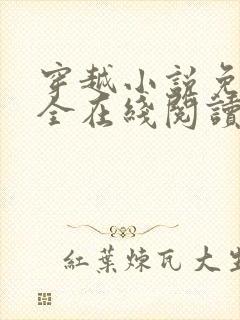 穿越小説免
全在綫閱讀
紅葉煉瓦大